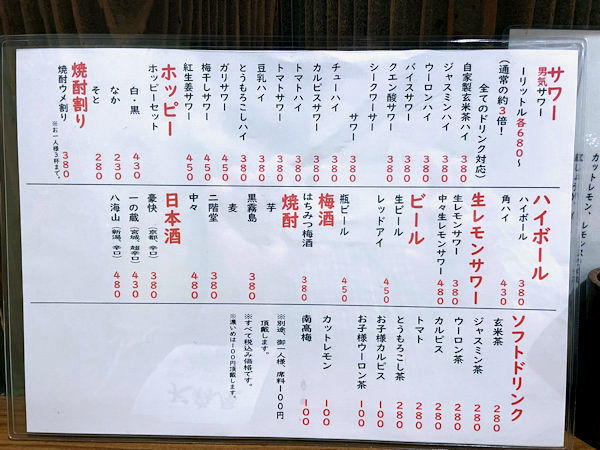 サワー
男気サワー
一リットル各680〜
(通常の約3倍!
全てのドリンク対応)
自家製玄米茶ハイ 380
ジャスミンハイ 380
ウーロンハイ 380
バイスサワー 380
クエン酸サワー 380
シークワーサー 380
サワー 380
チューハイ 380
カルピスサワー 380
トマトハイ 380
トマトサワー 380
豆乳ハイ 380
とうもろこしハイ 380
ガリサワー 450
梅干しサワー 450
紅生姜サワー 450
ホッピー
ホッピーセット
白・黒 430
なか 230
そと 280
焼酎割り
焼酎ウメ割り 380
※お一人様3杯まで。
ハイボール
ハイボール 380
角ハイ 430
生レモンサワー
生レモンサワー 380
中々生レモンサワー 480
ビール
生ビール
レッドアイ 450
瓶ビール 450
梅酒
はちみつ梅酒 380
焼酎
芋
黒霧島 380
麦
二階堂 380
中々 480
日本酒
豪快 (京都、辛口) 380
一の蔵 (宮城、超辛口) 430
八海山 (新潟、辛口) 480
ソフトドリンク
玄米茶 280
ジャスミン茶 280
ウーロン茶 280
カルピス 280
トマト 280
とうもろこし茶 280
お子様カルピス 100
お子様ウーロン茶 100
カットレモン 100
南高梅 100
※別途、御一人様、席料100円
頂戴します。
※すべて税込み価格です。
※濃いめは100円頂戴します。
カットレモン、レモン